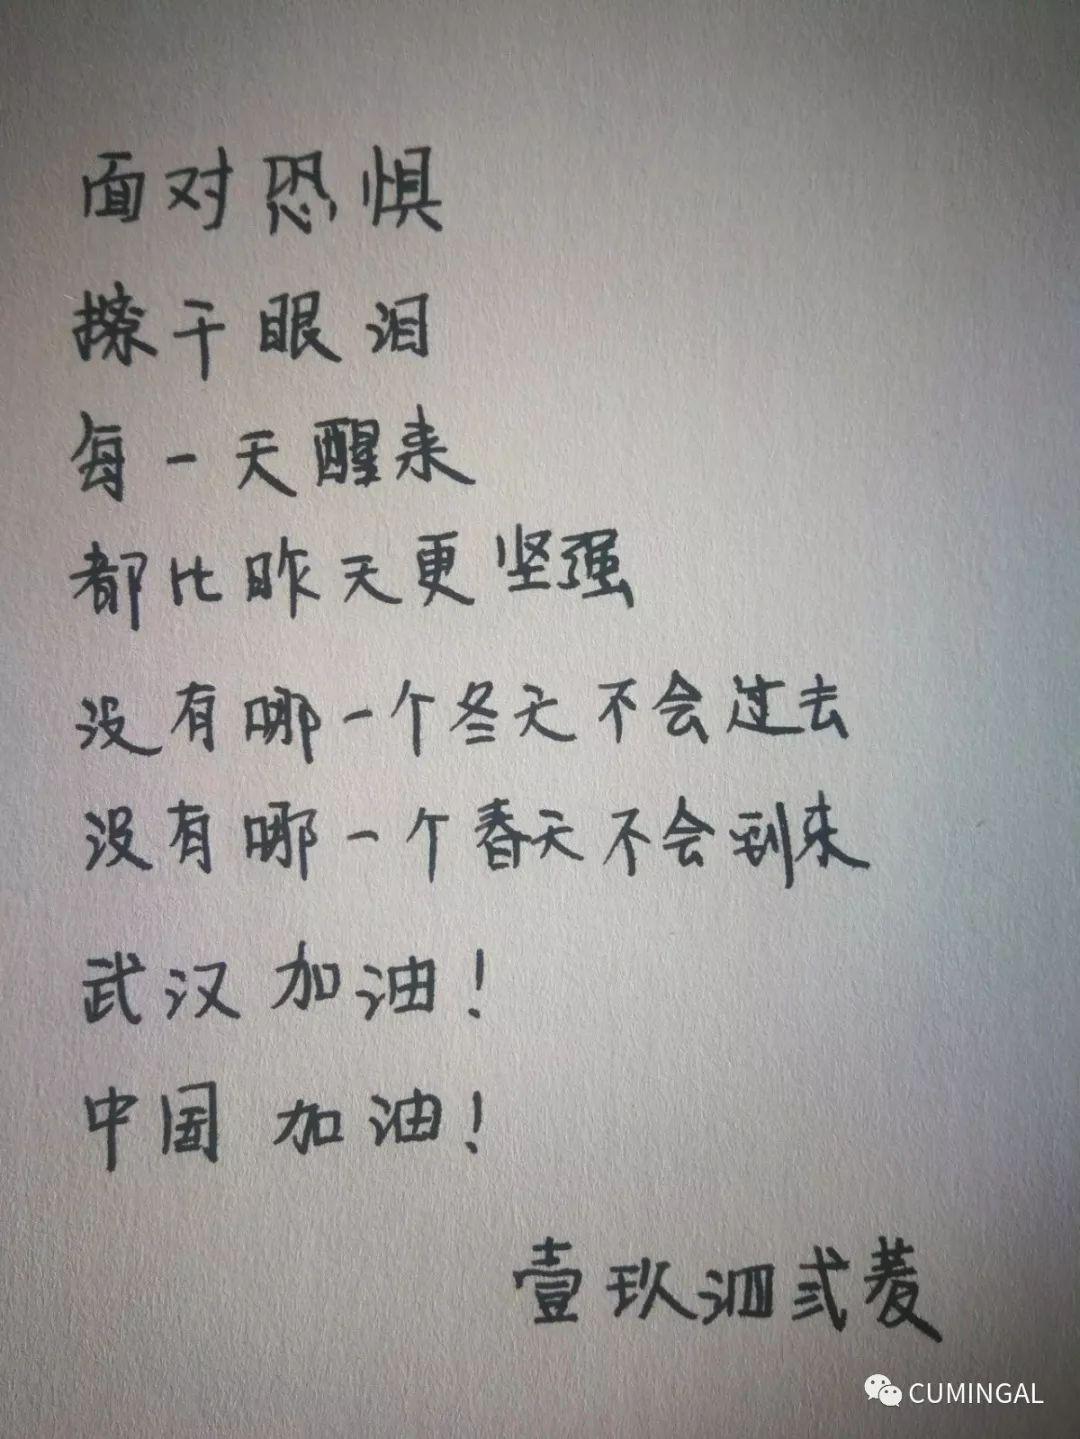 面对恐惧
擦干眼泪
每一天醒来
都比昨天更坚强
没有哪一个冬天不会过去
没有哪一个春天不会到来
武汉加油!
中国加油!
壹玖泗弍菱
CUMINGAL